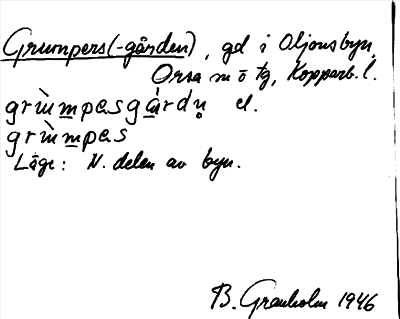 Grumpers(-gården), gd i Oljonsbyn,
Orsa sn o tg, Kopparb. l.
grùmpasgá̱rdn̥ el.
grùmpas
Läge: N. delen av byn.
B. Granholm 1946